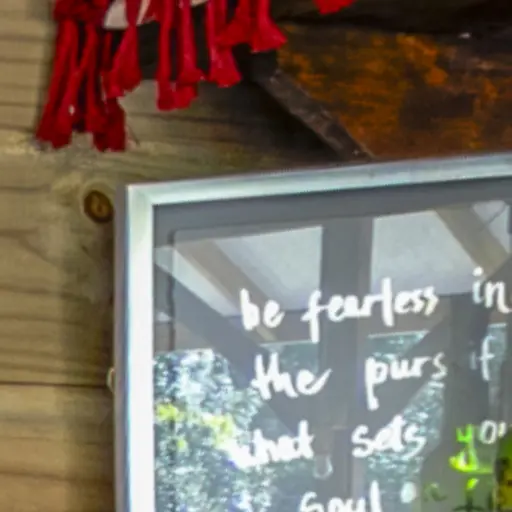 be fearless in
the purs
what sets you
soul